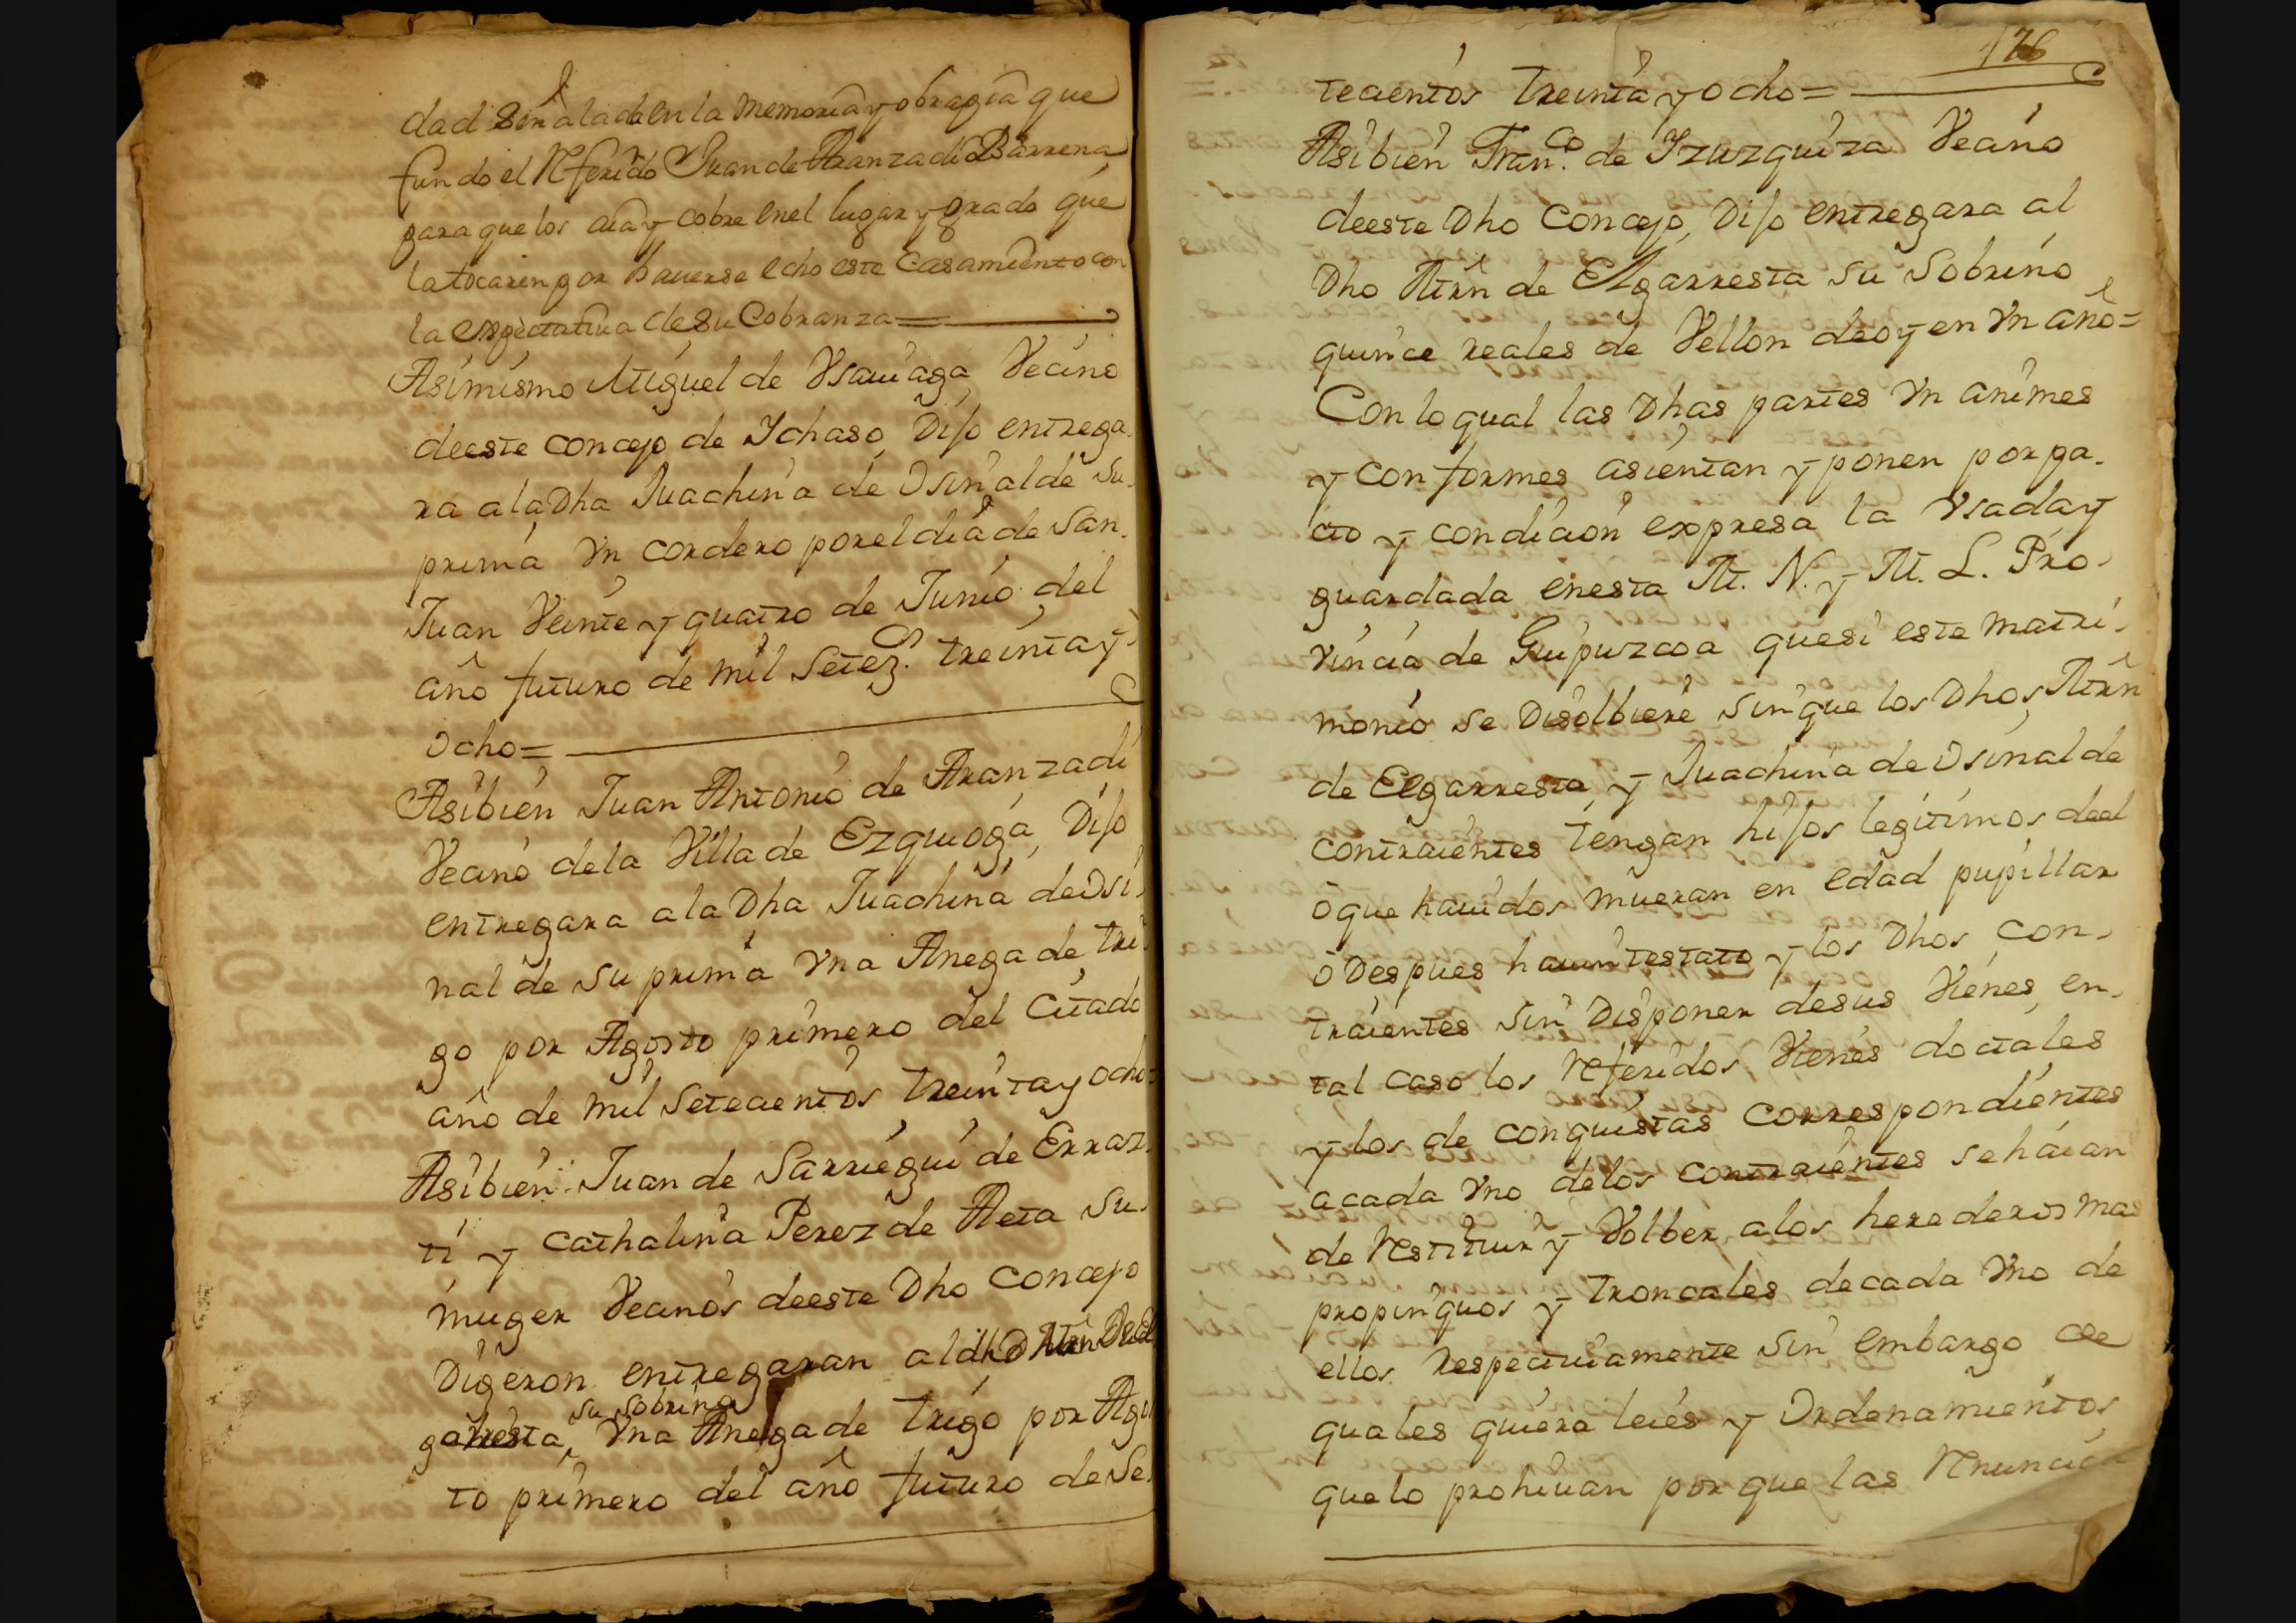 dad señalada en la memoria y obrapia que
fundo el Referido Juan de Aranzadi Barrena
para que los aia y cobre enel lugar y grado que
la tocaren por hauerse echo este Casamiento con
la expectatiua de su Cobranza=
Asimismo Miguel de Vsauiaga Vecino
deeste concejo de Ychaso, Dijo entrega-
ra ala Dha Juachina de Osinalde su
prima vn cordero porel dia de San.
Juan Veinte y quatro de Junio del
año futuro de mil Setezos. treinta y
ocho=
Asibien Juan Antonio de Aranzadi
Vecino dela Villa de Ezquioga, Dijo
entregara ala Dha Juachina de Osi-
nalde su prima vna Anega de tri-
go por Agosto primero del Citado
año de mil Setecientos treinta y ocho=
Asibien Juan de Sarriegui de Erraz-
ti y Cathalina Perez de Aeta su
muger Vecinos deeste Dho Concejo
Digeron entregaran al dho Mrn De El
su sobrino
garresta, vna Anega de trigo por Agos
to primero del año futuro de Se-
176
tecientos treinta y ocho=
Asibien Franco. de Yzuzquiza Vecino
deeste Dho Concejo, Dijo entregara al
Dho Mrn de Elgarresta su Sobrino
quince reales de Vellon deoy en vn año=
Con lo qual las Dhas partes vn animes
y conformes asientan y ponen por pa-
cto y condicion expresa la vsada y
guardada enesta M. N. y M. L. Pro-
vincia de Guipuzcoa quesi este matri-
monio se Disolbiere sin que los Dhos Mrn
de Elgarresta y Juachina de Osinalde
contraientes tengan hijos legitimos deel
ò que hauidos mueran en edad pupillar
ò Despues hauintestato y los Dhos Con-
traientes sin Disponer desus Vienes, en
tal caso los Referidos Vienes dotales
y los de conquistas correspondientes
acada vno delos contraientes sehaian
de Restituir y Volber alos herederos mas
propinquos y troncales decada vno de
ellos respectiuamente sin embargo de
quales quiera leies y Ordenamientos
quelo prohiuan por que las Renuncia